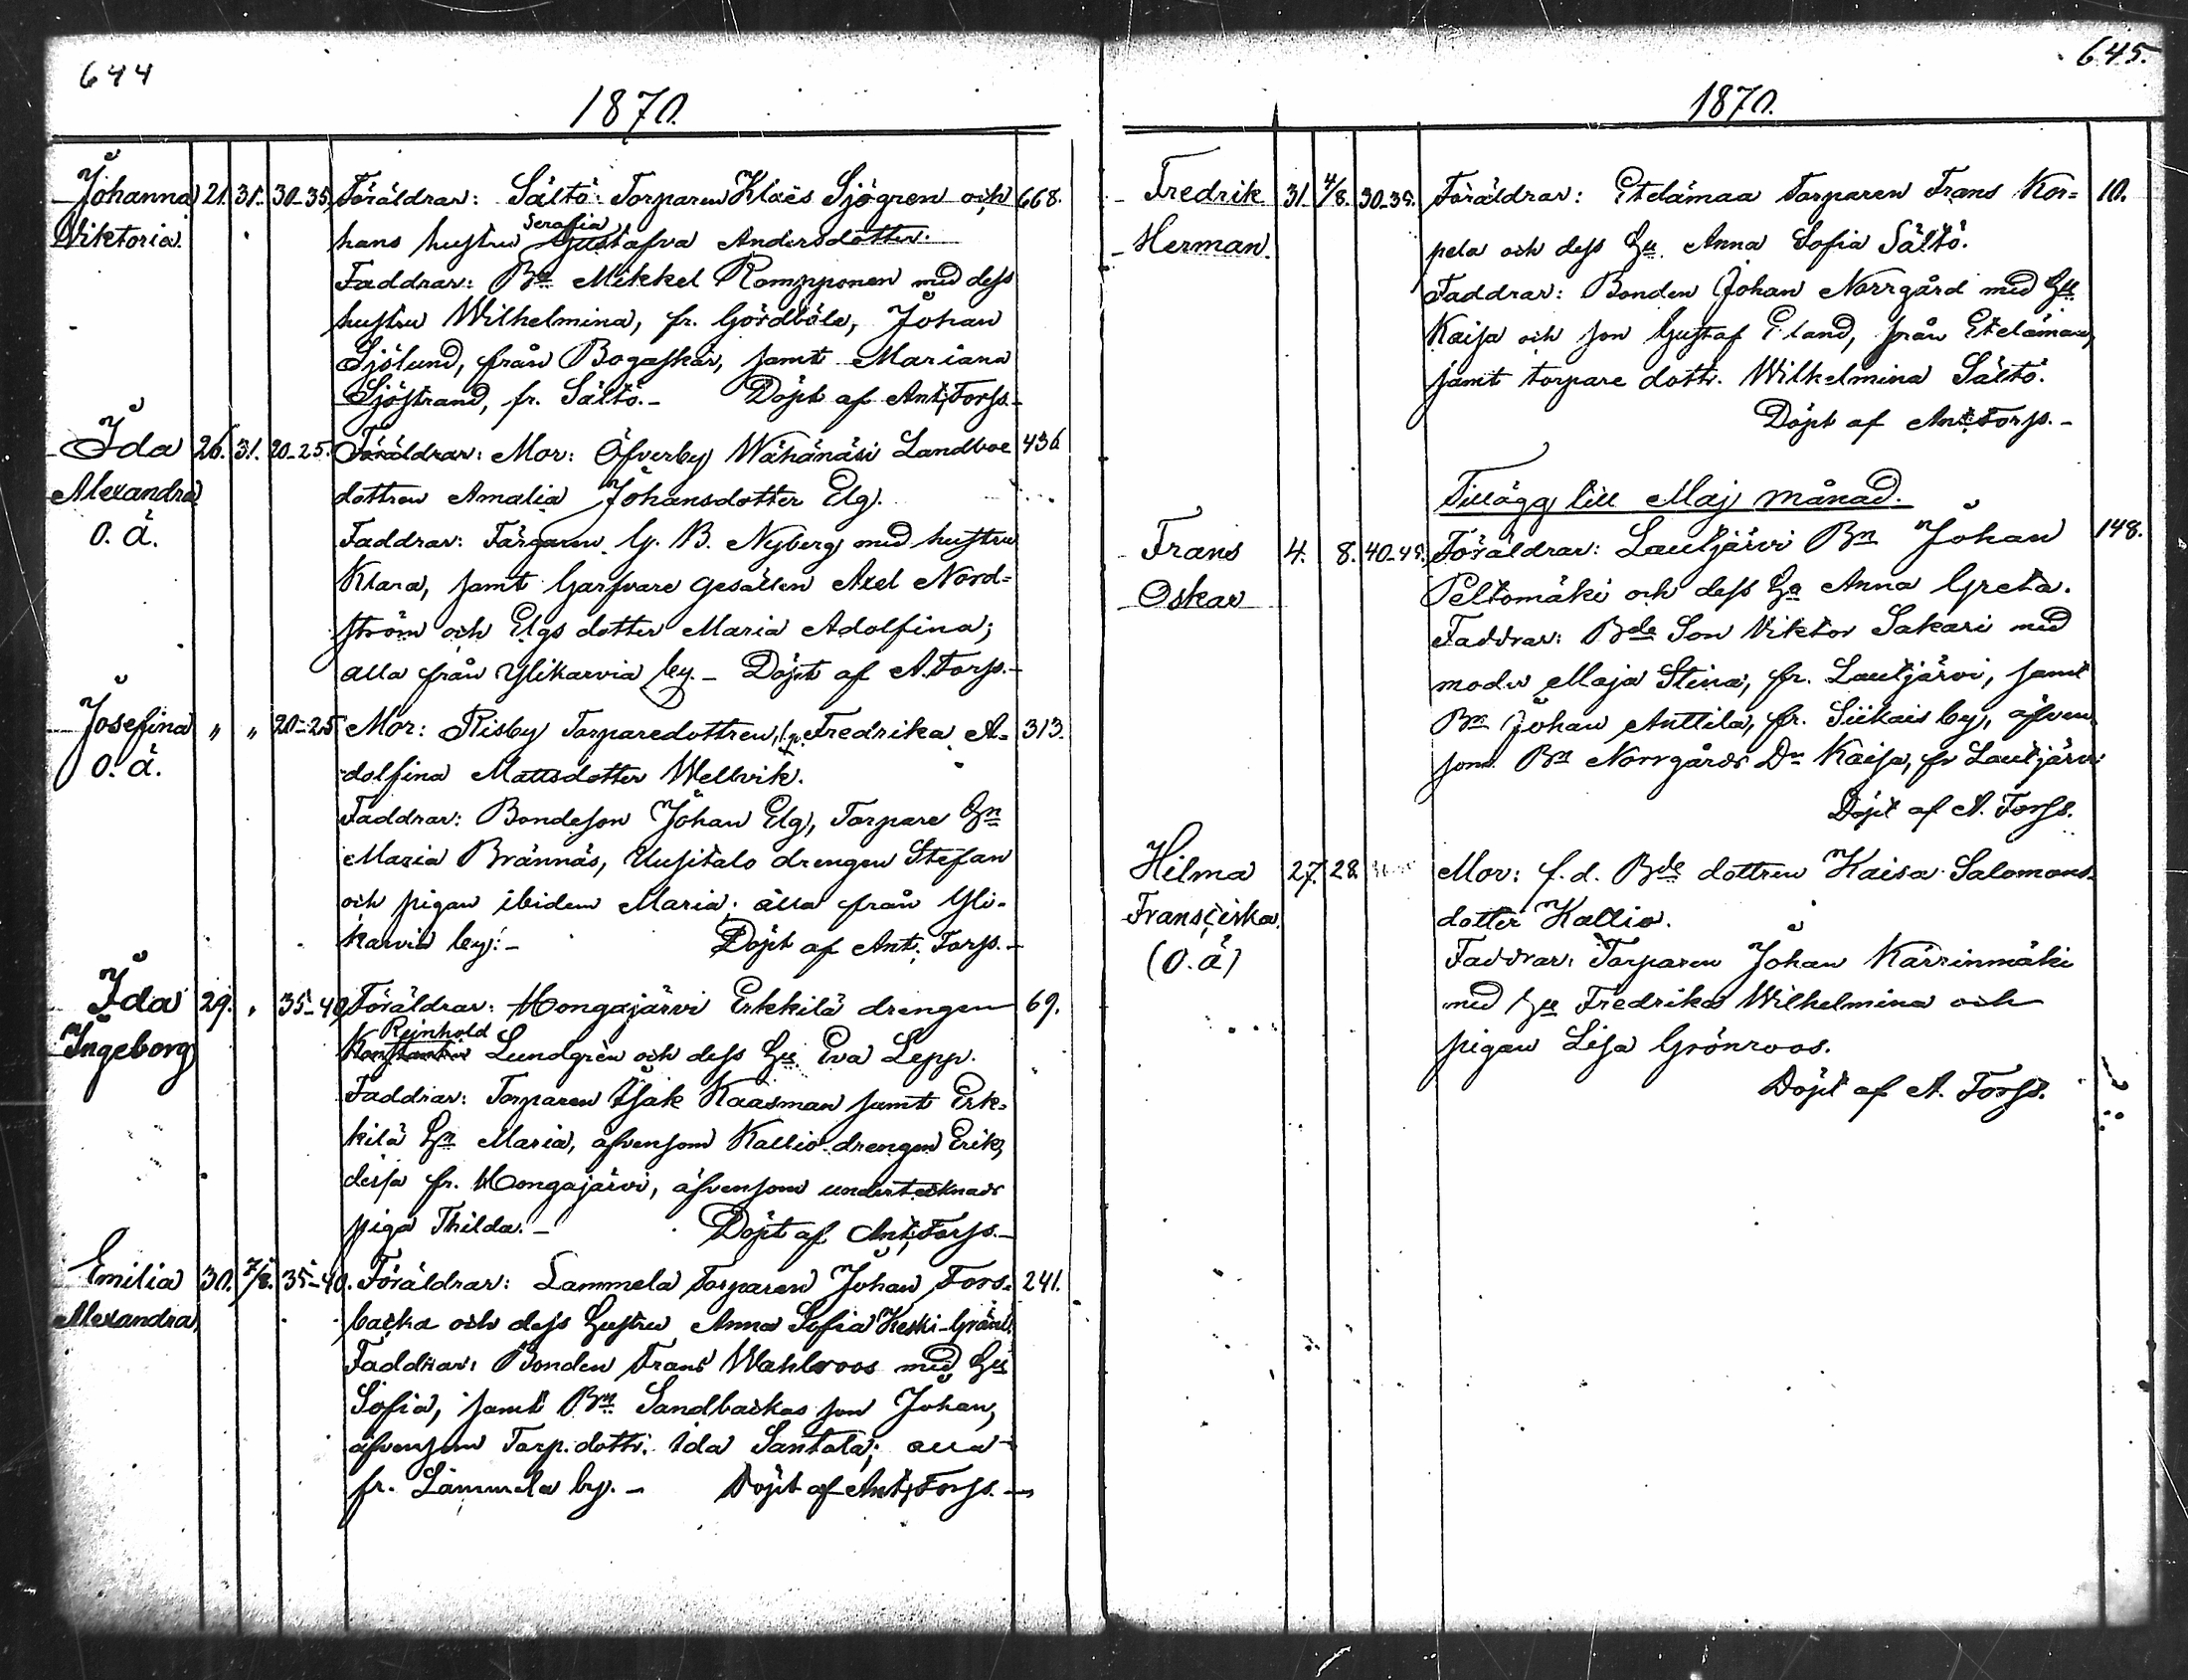 644
1870.
Johanna 21. 31. 30-35. Föräldrar: Sältö Torparen Klaës Sjögren och 668.
Viktoria. hans hustru Serafia Gustafva Andersdotter.
Faddrar: Bn Mikkel Rompponen med dess
hustru Wilhelmina, fr. Gördböle, Johan
Sjölund, från Bogaskär, samt Mariana
Sjöstrand, fr. Sältö.- Döpt af Ant. Forss.-
Ida 26. 31. 20-25. Föräldrar: Mor: Öfverby Wähänäsi Landboe 436
Alexandra dottren Amalia Johansdotter Elg.
O. ä. Faddrar: Färgaren G. B. Nyberg med hustru
Klara, samt Garfvare gesällen Axel Nord=
ström och Elgs dotter Maria Adolfina;
alla från Ylikarvia by.- Döpt af A. Forss.-
Josefina " " 20-25 Mor: Risby Torparedottren, Fredrika A= 313.
O. ä. dolfina Mattsdotter Wellvik.
Faddrar: Bondeson Johan Elg, Torpare Hn
Maria Brännäs, Uusitalo drengen Stefan
och pigan ibidem Maria; alla från Yli-
karvia by:- Döpt af Ant. Forss.-
Ida 29. " 35-40. Föräldrar: Hongajärvi Erkkilä drengen 69.
Ingeborg Rejnhold Konstantin Lundgrén och dess Hu Eva Lepp.
Faddrar: Torparen Isak Kaasman samt Erk=
kilä Hn Maria, äfvensom Kallio drengen Erik,
dessa fr. Hongajärvi, äfvensom undertecknads
piga Thilda.- Döpt af Ant. Forss.-
Emilia 30. 7/8. 35-40. Föräldrar: Lammela Torparen Johan Fors= 241.
Alexandra backa och dess Hustru Anna Sofia Keski-Gränd.
Faddrar: Bonden Frans Wahlroos med Hu
Sofia, samt Bn Sandbackas son Johan,
äfvensom Torp. dottr. Ida Santala; alla
fr. Lammela by.- Döpt af Ant. Forss.-
645.
1870.
Fredrik 31. 4/8. 30-35. Föräldrar: Etelämaa Torparen Frans Kor= 10.
Herman. pela och dess Hu Anna Sofia Sältö.
Faddrar: Bonden Johan Norrgård med Hu
Kaisa och son Gustaf Eland, från Etelämaa,
samt torpare dottr. Wilhelmina Sältö.
Döpt af Ant. Forss.-
Tillägg till Maj månad.
Frans 4. 8. 40-45. Föräldrar: Lautjärvi Bn Johan 148.
Oskar Peltomäki och dess Hu Anna Greta.
Faddrar: Bde Son Viktor Sakari med
moder Maja Stina, fr. Lautjärvi, samt
Bn Johan Anttila, fr. Siikais by, äfven
som Bn Norrgårds Dr Kaisa, fr Lautjärvi
Döpt af A. Forss.
Hilma 27. 28. Mor: f. d. Bde dottren Kaisa Salomons=
Fransciska dotter Kallio.
(O. ä) Faddrar: Torparen Johan Kärrinmäki
med Hu Fredrika Wilhelmina och
pigan Lisa Grönroos.
Döpt af A. Forss.